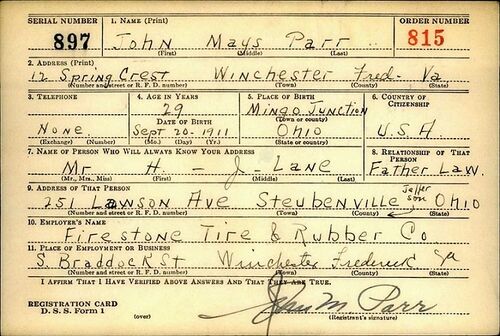 SERIAL NUMBER 1. NAME (Print) ORDER NUMBER
897 John Mays Parr 815
(First) (Middle) (Last)
2. ADDRESS (Print)
12 Spring Crest Winchester Fred- Va
(Number and street or R. F. D. number) (Town) (County) (State)
3. TELEPHONE 4. AGE IN YEARS 5. PLACE OF BIRTH 6. COUNTRY OF CITIZENSHIP
29 Mingo Junction
DATE OF BIRTH (Town or county)
None Sept 20- 1911 OHIO U.S.A
(Exchange) (Number) (Mo.) (Day) (Yr.) (State or country)
7. NAME OF PERSON WHO WILL ALWAYS KNOW YOUR ADDRESS 8. RELATIONSHIP OF THAT PERSON
Mr H- J- Lane Father Law.
(Mr., Mrs., Miss) (First) (Middle) (Last)
9. ADDRESS OF THAT PERSON
251 Lawson Ave Steubenville Jefferson OHIO
(Number and street or R. F. D. number) (Town) (County) (State)
10. EMPLOYER'S NAME
Firestone Tire & Rubber Co
11. PLACE OF EMPLOYMENT OR BUSINESS
S. Braddock St Winchester Frederick Va
(Number and street or R. F. D. number) (Town) (County) (State)
I AFFIRM THAT I HAVE VERIFIED ABOVE ANSWERS AND THAT THEY ARE TRUE.
REGISTRATION CARD
D. S. S. Form 1 (over) John M. Parr
(Registrant's signature)